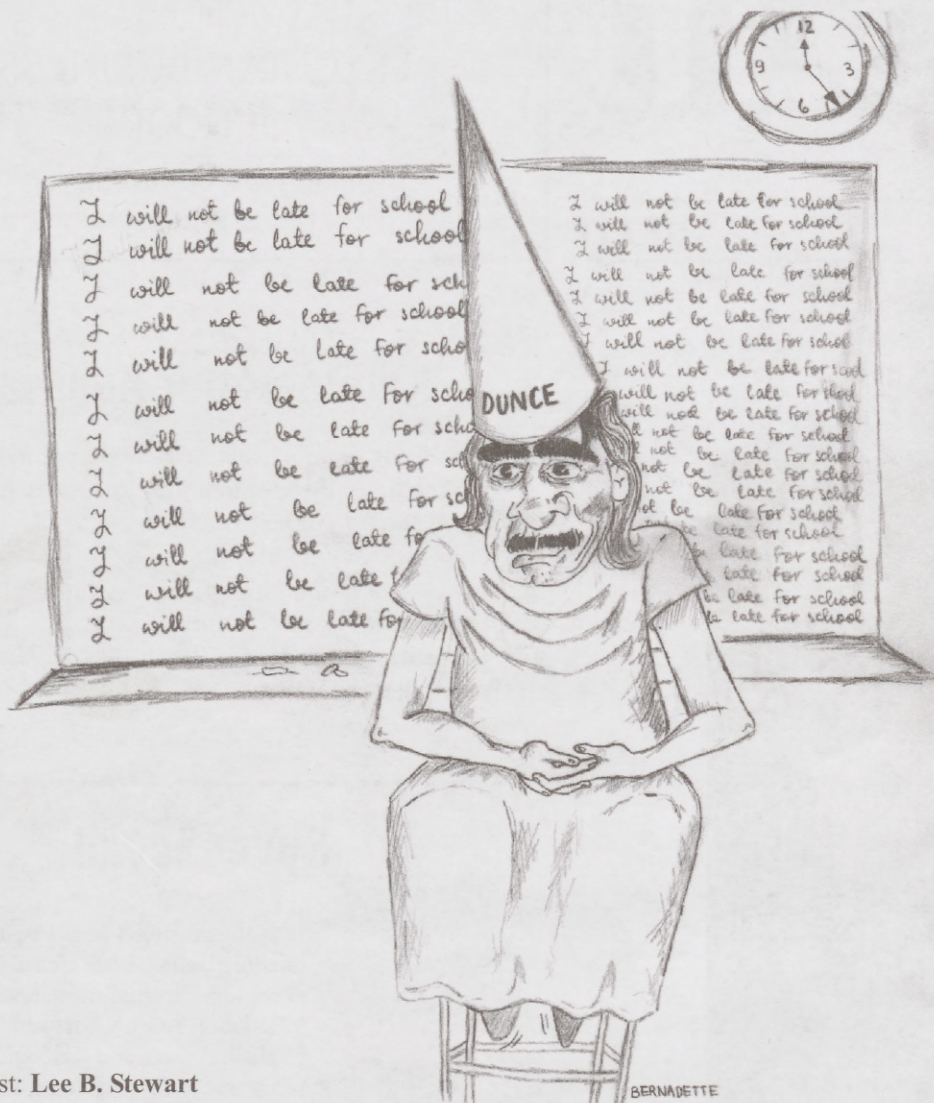 12
9 3
6
I will not be late for school
I will not be late for school
I will not be late for sch
I will not be late for school
I will not be late for scho
I will not be late for scho
I will not be late for scho
I will not be late for sc
I will not be late for sc
I will not be late fo
I will not be late f
I will not be late for
I will not be late for school
I will not be late for school
I will not be late for school
I will not be late for school
I will not be late for school
I will not be late for school
I will not be late for school
I will not be late for scool
will not be late for shool
will not be late for school
ll not be late for school
not be late for school
not be late for school
not be late for school
ot be late for school
be late for school
be late for school
late for school
be late for school
be late for school
DUNCE
st: Lee B. Stewart
BERNADETTE